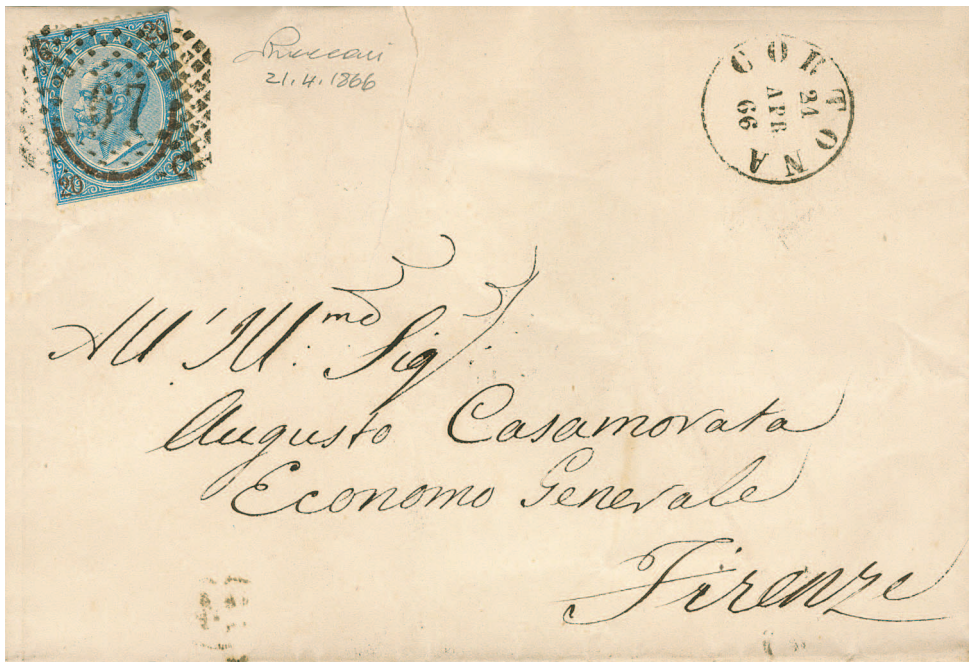 POSTE ITALIANE
67
20
21.4.1866
CORTONA
21
APR
66
All' Ill.mo Sig.r
Augusto Casamorata
Economo Generale
Firenze